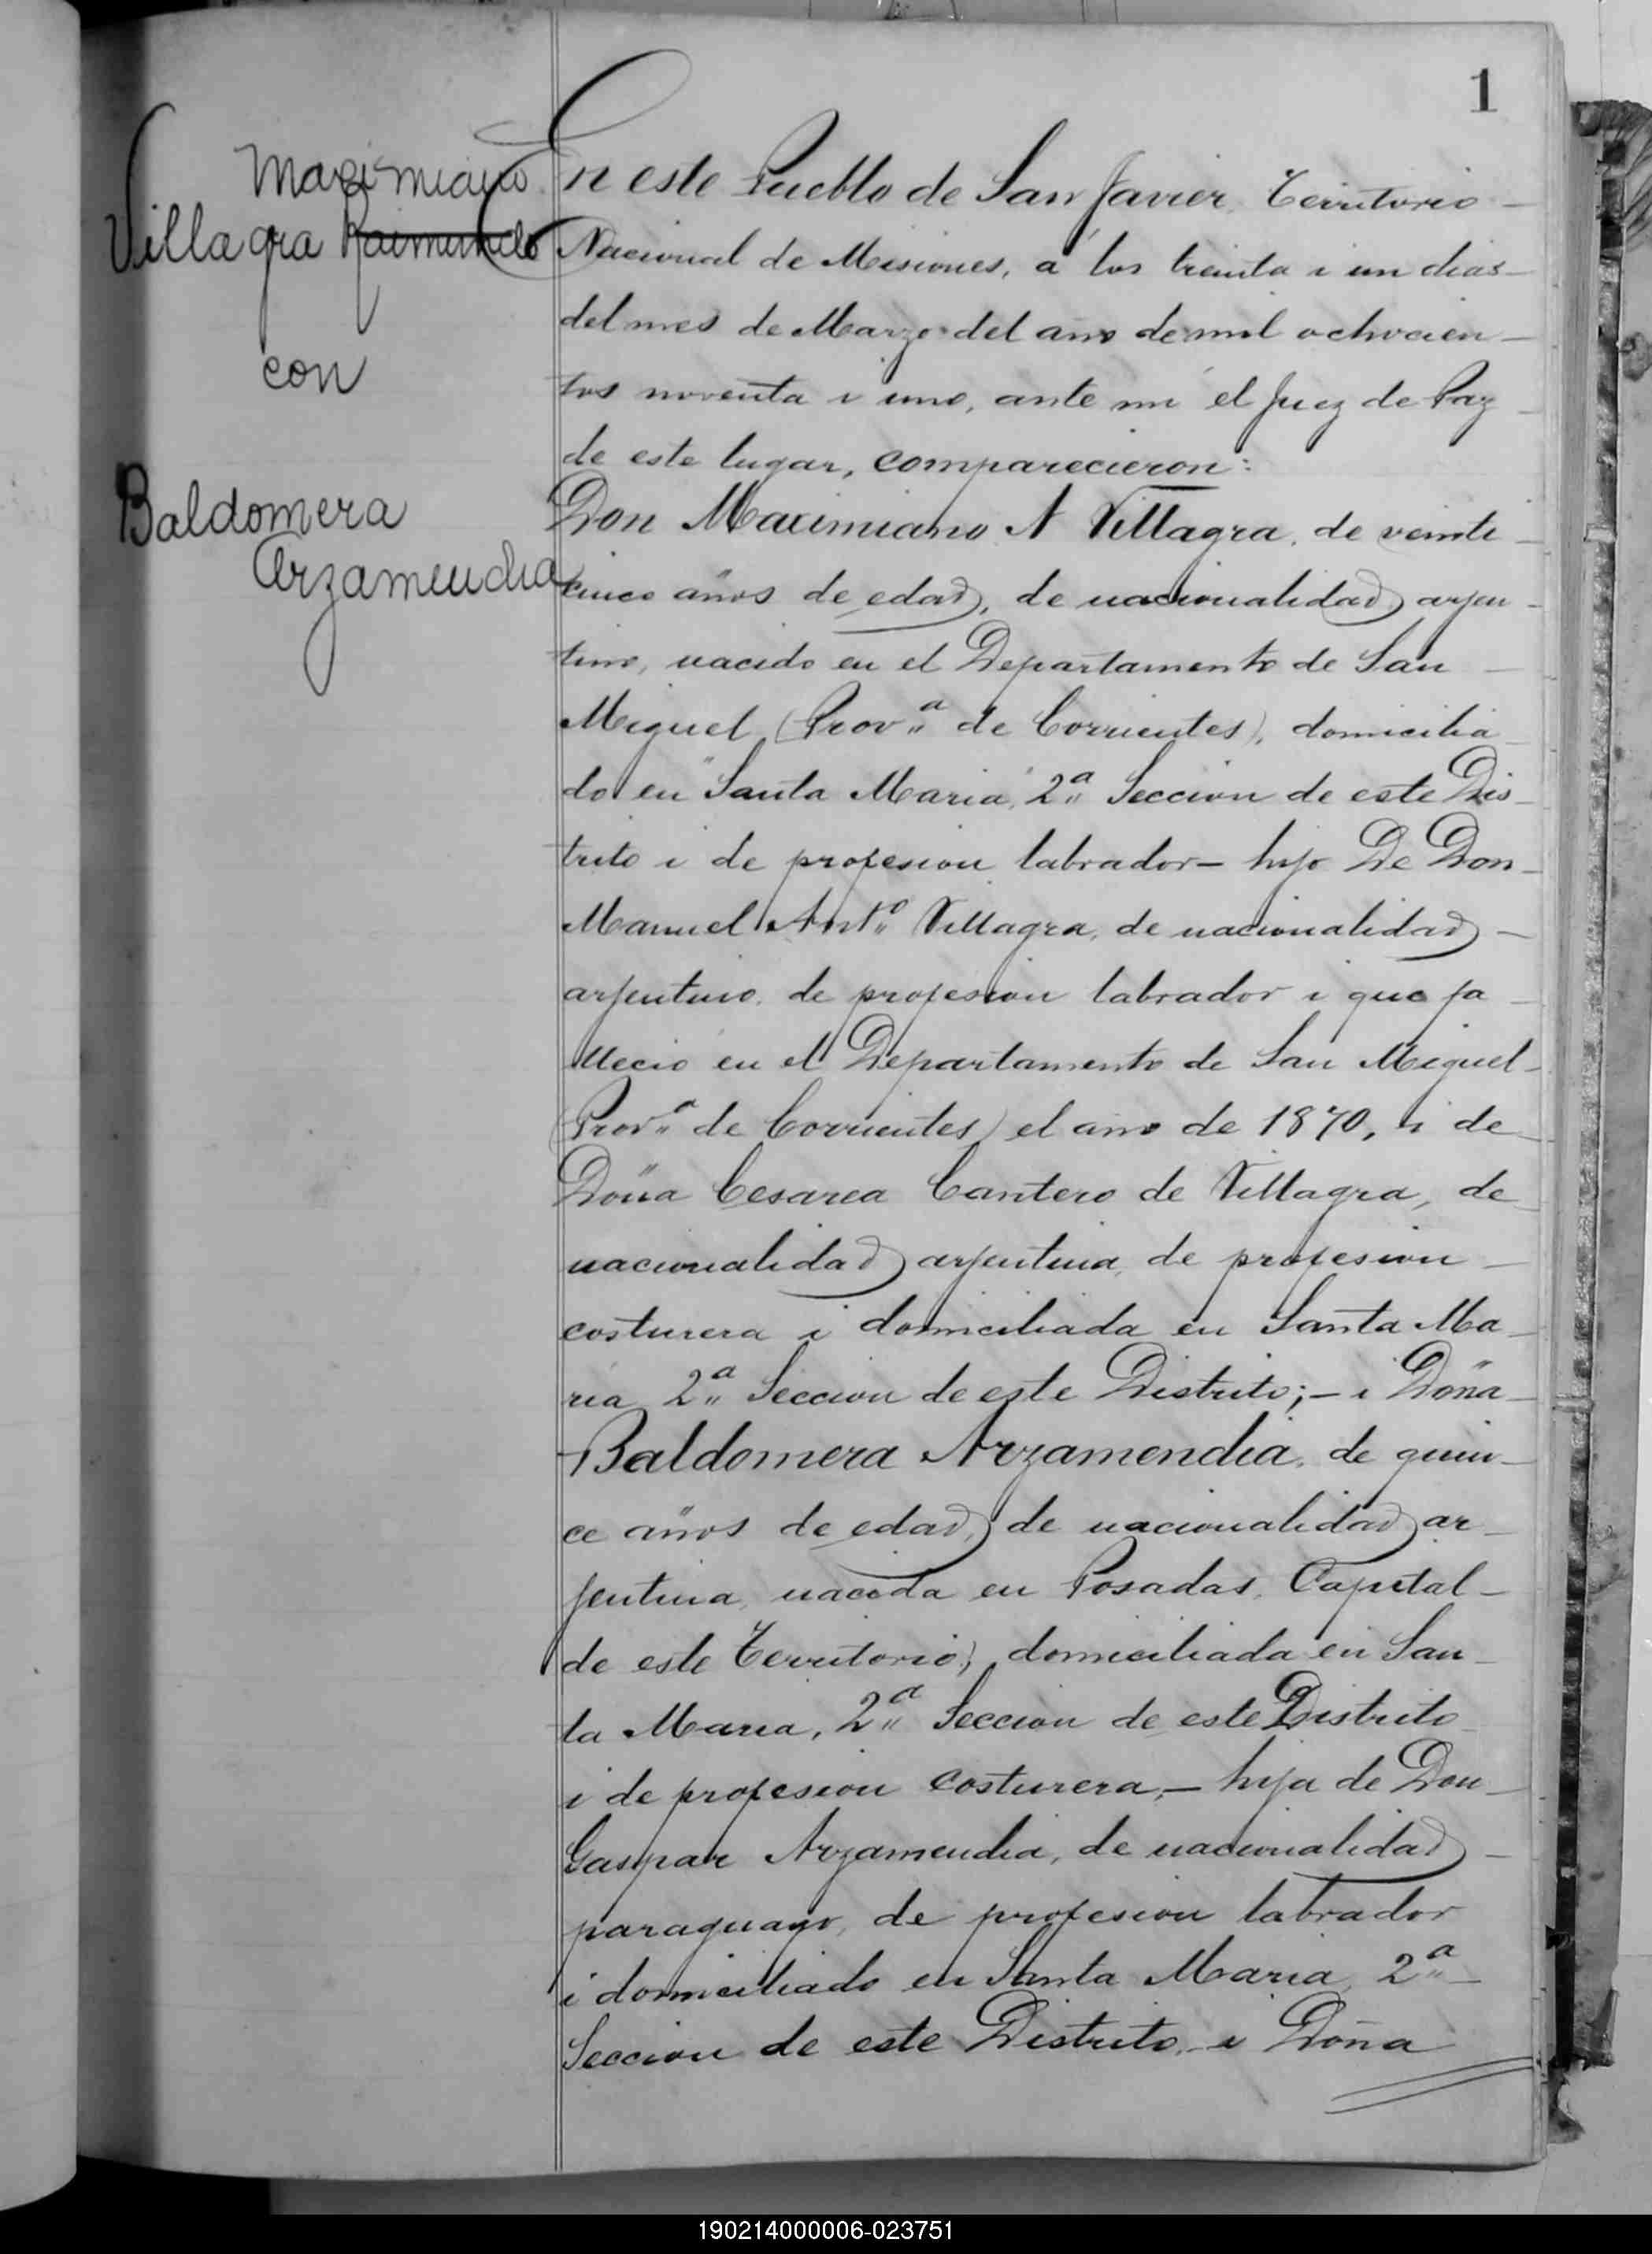 1
Maximiano
Villagra Raimundo
con
Baldomera
Arzamendia
En este Pueblo de San Javier, Territorio
Nacional de Misiones, á los treinta i un dias
del mes de Marzo del año de mil ochocien-
tos noventa i uno, ante mi el Juez de Paz
de este lugar, comparecieron:
Don Maximiano A Villagra, de veinti
cinco años de edad, de nacionalidad arjen-
tino, nacido en el Departamento de San
Miguel (Prov.ª de Corrientes), domicilia
do en "Santa Maria", 2ª Seccion de este Dis-
trito i de profesion labrador — hijo De Don
Manuel Ant.º Villagra, de nacionalidad
arjentino, de profesion labrador i que fa
llecio en el Departamento de San Miguel
(Prov.ª de Corrientes) el año de 1870, i de
Doña Cesarea Cantero de Villagra, de
nacionalidad arjentina, de profesion
costurera i domiciliada en Santa Ma
ria 2ª Seccion de este Distrito; — i Doña
Baldomera Arzamendia, de quin-
ce años de edad, de nacionalidad ar
jentina, nacida en Posadas, Capital
de este Territorio, domiciliada en San
ta Maria, 2ª Seccion de este Distrito
i de profesion costurera, — hija de Don
Gaspar Arzamendia, de nacionalidad
paraguayo, de profesion labrador
i domiciliado en Santa Maria, 2ª
Seccion de este Distrito, i Doña
190214000006-023751